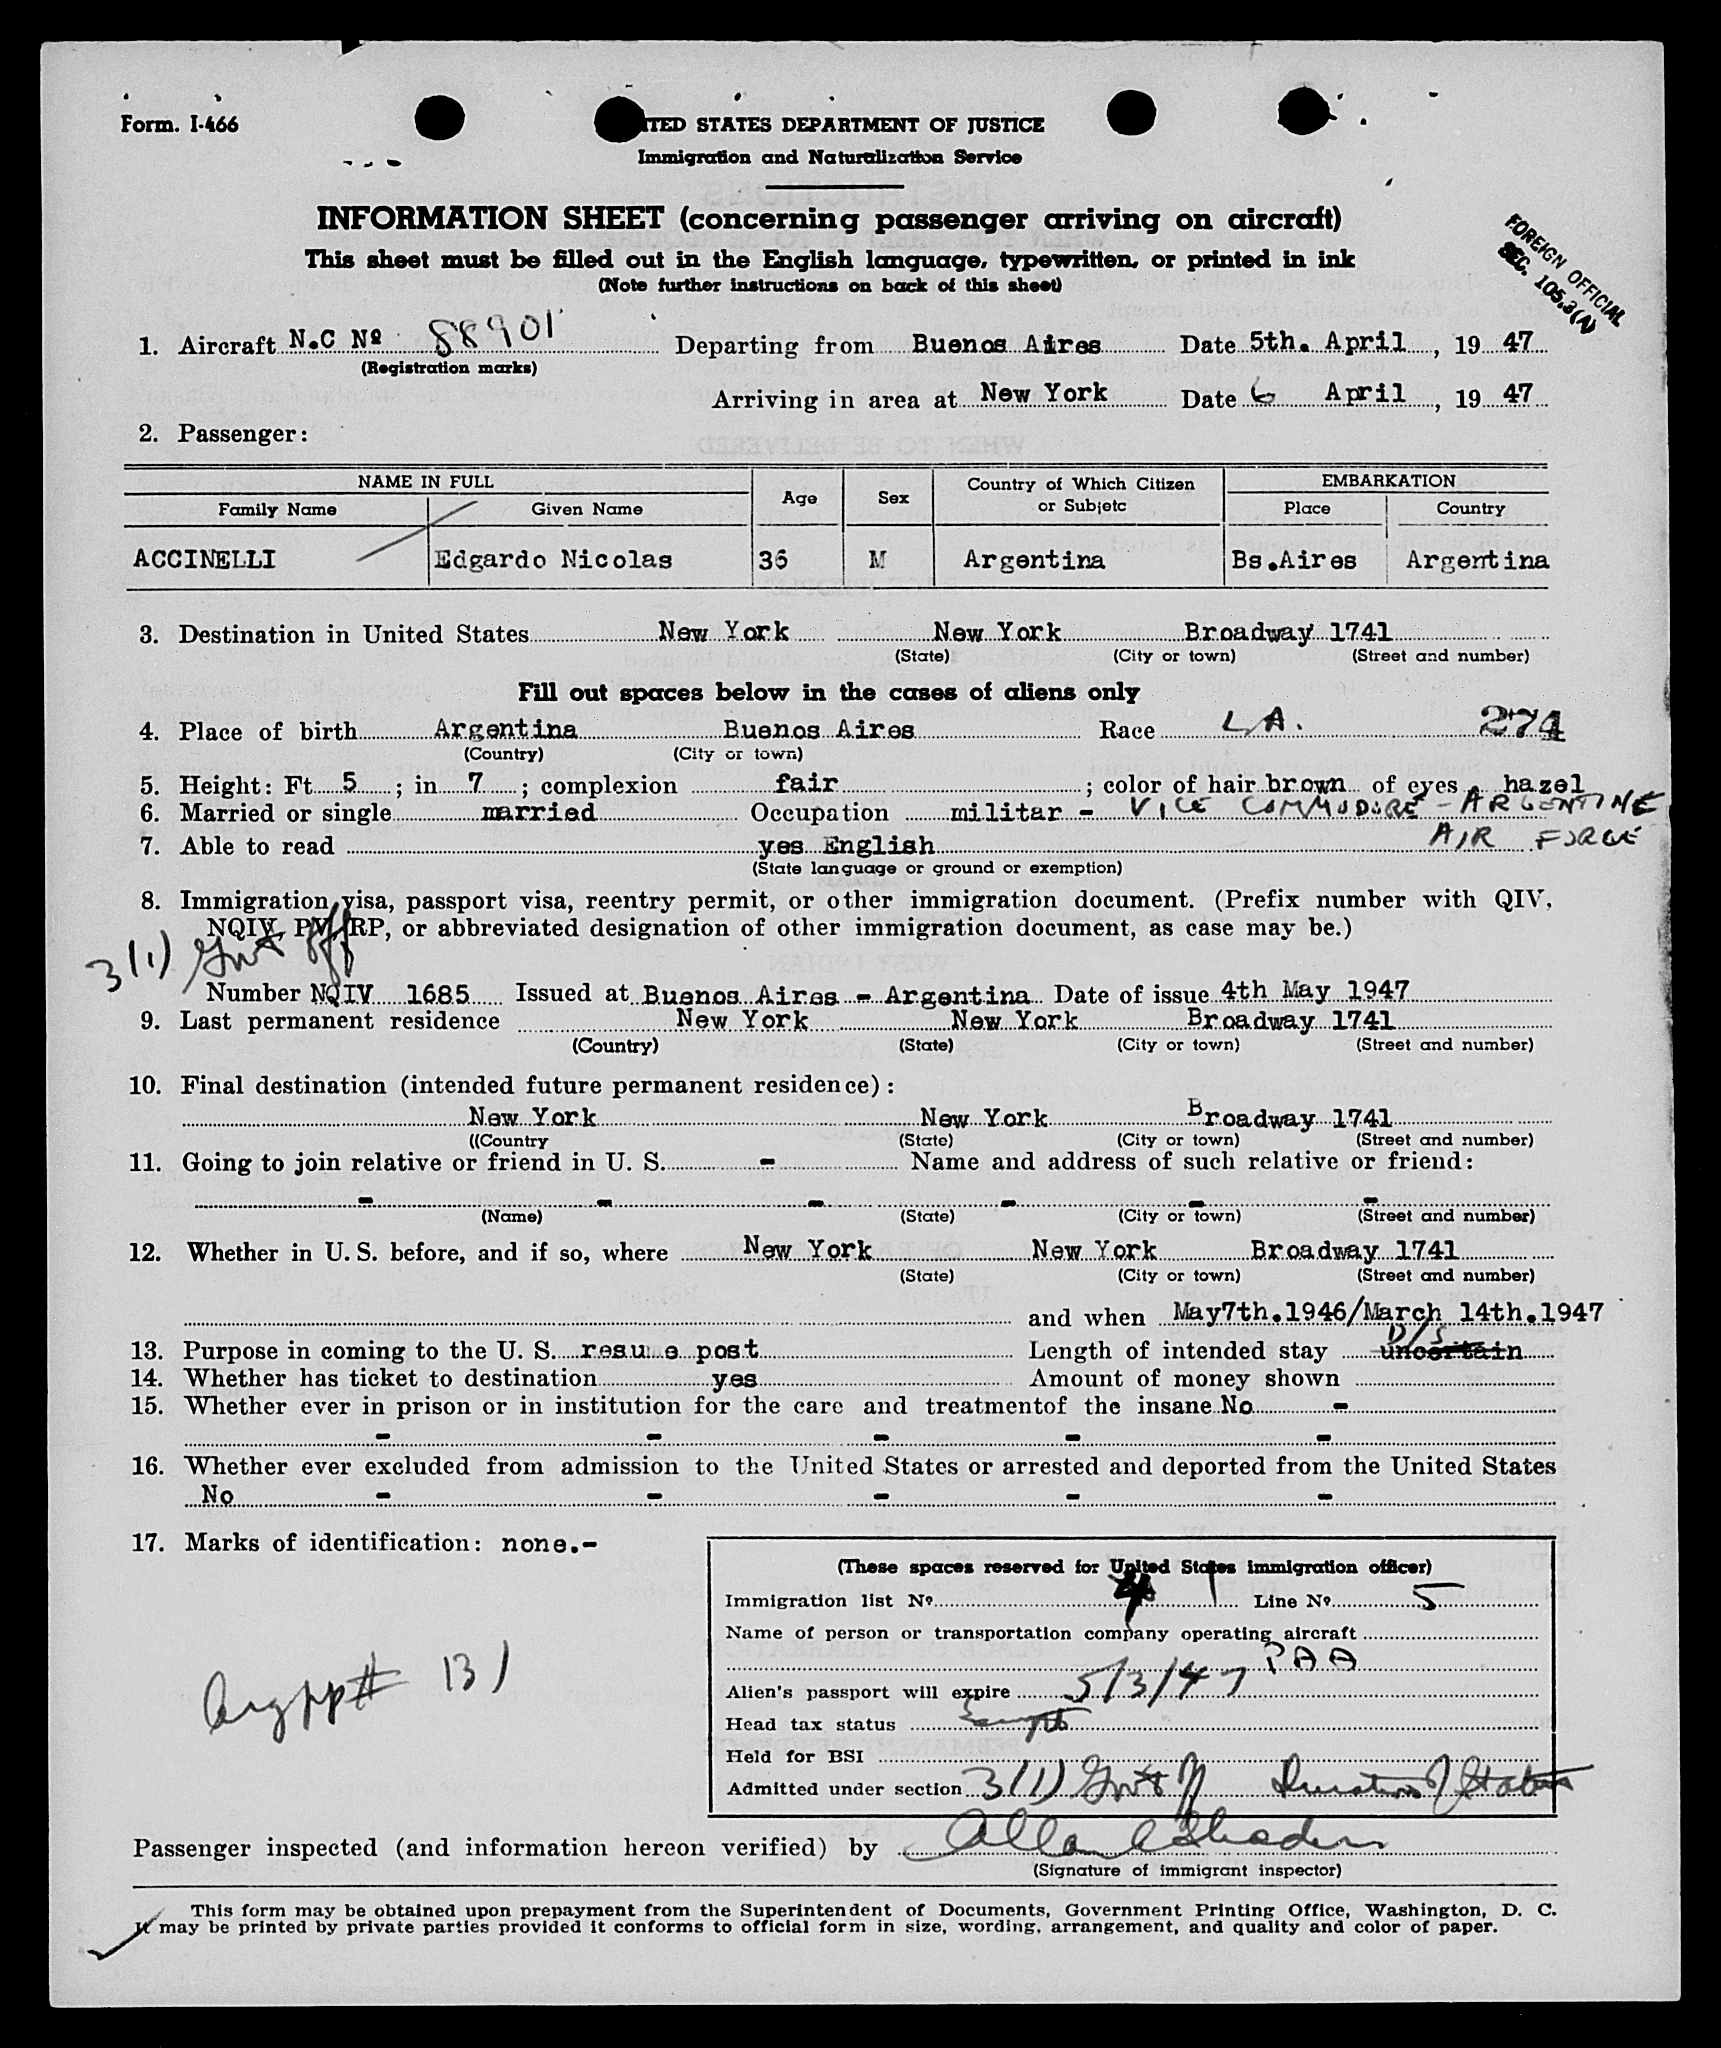 Form. I-466
ITED STATES DEPARTMENT OF JUSTICE
Immigration and Naturalization Service
INFORMATION SHEET (concerning passenger arriving on aircraft)
This sheet must be filled out in the English language, typewritten, or printed in ink
(Note further instructions on back of this sheet)
FOREIGN OFFICIAL
SEC. 105.3(A)
1. Aircraft N.C Nº 88901 Departing from Buenos Aires Date 5th. April, 19 47
(Registration marks)
Arriving in area at New York Date 6 April, 19 47
2. Passenger:
NAME IN FULL Age Sex Country of Which Citizen or Subjetc EMBARKATION
Family Name Given Name Place Country
ACCINELLI Edgardo Nicolas 36 M Argentina Bs.Aires Argentina
3. Destination in United States New York New York Broadway 1741
(State) (City or town) (Street and number)
Fill out spaces below in the cases of aliens only
4. Place of birth Argentina Buenos Aires Race L.A. 274
(Country) (City or town)
5. Height: Ft 5 ; in 7 ; complexion fair ; color of hair brown of eyes hazel
6. Married or single married Occupation militar - VICE COMMODORE - ARGENTINE
7. Able to read yes English AIR FORCE
(State language or ground or exemption)
8. Immigration visa, passport visa, reentry permit, or other immigration document. (Prefix number with QIV,
NQIV, PV, RP, or abbreviated designation of other immigration document, as case may be.)
3(1) Gov't Off
Number NQIV 1685 Issued at Buenos Aires - Argentina Date of issue 4th May 1947
9. Last permanent residence New York New York Broadway 1741
(Country) (State) (City or town) (Street and number)
10. Final destination (intended future permanent residence):
New York New York Broadway 1741
((Country (State) (City or town) (Street and number)
11. Going to join relative or friend in U. S. - Name and address of such relative or friend:
- - - - - -
(Name) (State) (City or town) (Street and number)
12. Whether in U. S. before, and if so, where New York New York Broadway 1741
(State) (City or town) (Street and number)
and when May7th.1946/March 14th.1947
D/S
13. Purpose in coming to the U. S. resu e post Length of intended stay uncertain
14. Whether has ticket to destination yes Amount of money shown
15. Whether ever in prison or in institution for the care and treatmentof the insane No -
- - - - -
16. Whether ever excluded from admission to the United States or arrested and deported from the United States
No - - - - -
17. Marks of identification: none.-
(These spaces reserved for United States immigration officer)
Immigration list Nº 1 Line Nº 5
Name of person or transportation company operating aircraft
PAA
Arg pp# 131
Alien's passport will expire 5/3/47
Head tax status Exempt
Held for BSI
Admitted under section 3(1) Gov't Off Duration of Status
Passenger inspected (and information hereon verified) by Allan
(Signature of immigrant inspector)
This form may be obtained upon prepayment from the Superintendent of Documents, Government Printing Office, Washington, D. C.
It may be printed by private parties provided it conforms to official form in size, wording, arrangement, and quality and color of paper.